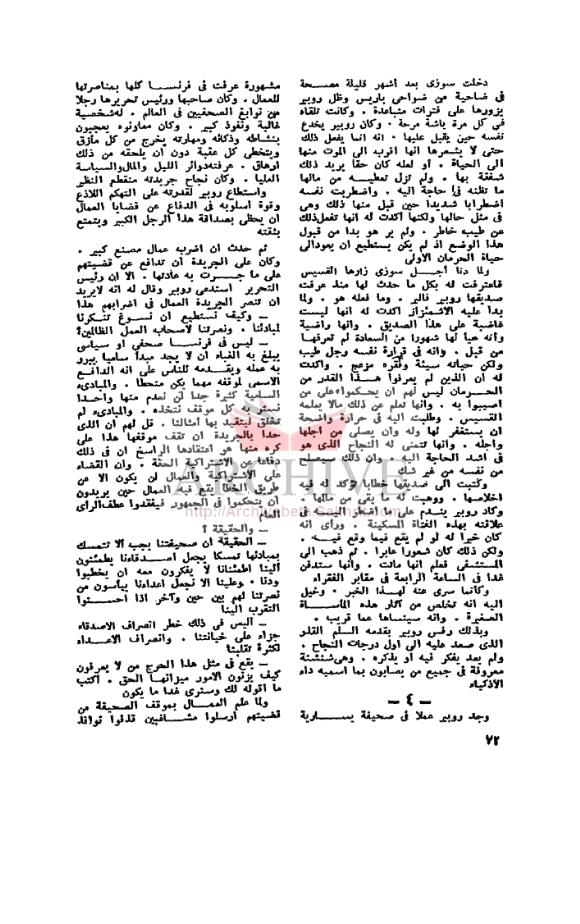 دخلت سوزى بعد أشهر قليلة مصحة
فى ضاحية من ضواحى باريس وظل روبير
يزورها على فترات متباعدة . وكانت تلقاه
فى كل مرة باشة مرحة . وكان روبير يخدع
نفسه حين يقبل عليها . انه انما يفعل ذلك
حتى لا يشعرها انها اقرب الى الموت منها
الى الحياة . أو لعله كان حقا يريد ذلك
شفقة بها . ولم تزل تعطيه من مالها
ما تظنه فى حاجة اليه . واضطربت نفسه
اضطرابا شديدا حين قبل منها ذلك وهى
فى مثل حالها ولكنها أكدت له انها تفعل ذلك
عن طيب خاطر . ولم ير هو بدا من قبول
هذا الوضع اذ لم يكن يستطيع ان يعود الى
حياة الحرمان الاولى
ولما دنا أجل سوزى زارها القسيس
فاعترفت له بكل ما حدث لها منذ عرفت
صديقها روبير فالير . وما فعله هو . ولما
بدا عليه الاشمئزاز أكدت له انها ليست
غاضبة على هذا الصديق . وانها راضية
وانه هيأ لها شهورا من السعادة لم تعرفها
من قبل . وانه فى قرارة نفسه رجل طيب
ولكن حياته سيئة وفقره مزعج . وأكدت
له ان الذين لم يعرفوا هذا القدر من
الحرمان ليس لهم ان يحكموا على من
أصيبوا به . وانها تعلم عن ذلك مالا يعلمه
القسيس . وطلبت اليه فى حرارة واضحة
ان يستغفر لها وله وان يصلى من أجلها
وأجله . وانها تتمنى له النجاح الذى هو
فى أشد الحاجة اليه . وان ذلك سيصلح
من نفسه من غير شك
وكتبت الى صديقها خطابا تؤكد له فيه
اخلاصها . ووهبت له ما بقى من مالها .
وكاد روبير يندم على ما اضطر اليه فى
علاقته بهذه الفتاة المسكينة . ورأى انه
كان خيرا له لو لم يقع فيما وقع فيه .
ولكن ذلك كان شعورا عابرا . ثم ذهب الى
المستشفى فعلم انها ماتت . وانها ستدفن
غدا فى الساعة الرابعة فى مقابر الفقراء
وكأنما سرى عنه لهذا الخبر . وخيل
اليه انه تخلص من آثار هذه المأساة
الصغيرة . وانه سينساها عما قريب .
وبذلك رفس روبير بقدمه السلم القذر
الذى صعد عليه الى اول درجات النجاح .
ولم يعد يفكر فيه أو يذكره . وهى شنشنة
معروفة فى جميع من يصابون بما اسميه داء
الأذكياء
- ٤ -
وجد روبير عملا فى صحيفة يسارية
مشهورة عرفت فى فرنسا كلها بمناصرتها
للعمال . وكان صاحبها ورئيس تحريرها رجلا
من نوابغ الصحفيين فى العالم . له شخصية
غالبة ونفوذ كبير . وكان معاونوه يعجبون
بنشاطه وذكائه ومهارته يخرج من كل مأزق
ويتخطى كل عقبة دون أن يلحقه من ذلك
ارهاق . عرفته دوائر الليل والمال والسياسة
العليا . وكان نجاح جريدته منقطع النظير
واستطاع روبير لقدرته على التهكم اللاذع
وقوة أسلوبه فى الدفاع عن قضايا العمال
ان يحظى بصداقة هذا الرجل الكبير ويتمتع
بثقته
ثم حدث ان اضرب عمال مصنع كبير .
وكان على الجريدة أن تدافع عن قضيتهم
على ما جرت به عادتها . الا ان رئيس
التحرير استدعى روبير وقال له انه لا يريد
ان تنصر الجريدة العمال فى اضرابهم هذا
ــ وكيف نستطيع ان نسوغ تنكرنا
لمبادئنا . ونصرتنا لأصحاب العمل الظالمين؟
ــ ليس فى فرنسا صحفى أو سياسى
يبلغ به الغباء ان لا يجد مبدأ ساميا يبرر
به عمله ويقدمه للناس على انه الدافع
الاسمى لموقفه مهما يكن منحطا . والمبادىء
السامية كثيرة جدا لن نعدم منها واحدا
نستر به كل موقف نتخذه . والمبادىء لم
تخلق ليتقيد بها أمثالنا . قل لهم ان الذى
حدا بالجريدة ان تقف موقفها هذا على
كره منها هو اعتقادها الراسخ ان فى ذلك
دفاعا عن الاشتراكية الحقة . وان القضاء
على الاشتراكية والعمال لن يكون الا عن
طريق الخطأ يقع فيه العمال حين يريدون
ان يتحكموا فى الجمهور فيفقدوا عطف الرأى
العام
ــ والحقيقة ؟
ــ الحقيقة ان صحيفتنا يجب ألا تتمسك
بمبادئها تمسكا يجعل أصدقاءنا يطمئنون
الينا اطمئنانا لا يفكرون معه ان يخطبوا
ودنا . وعلينا الا نجعل اعداءنا ييأسون من
نصرتنا لهم بين حين وآخر اذا أحسنوا
التقرب الينا
ــ أليس فى ذلك خطر انصراف الاصدقاء
جزاء على خيانتنا . وانصراف الاعداء
لكثرة تقلبنا
ــ يقع فى مثل هذا الحرج من لا يعرفون
كيف يزنون الامور ميزانها الحق . أكتب
ما أقوله لك وسترى غدا ما يكون
ولما علم العمال بموقف الصحيفة من
قضيتهم أرسلوا مشاغبين قذفوا نوافذ
٧٢
ARCHIVE